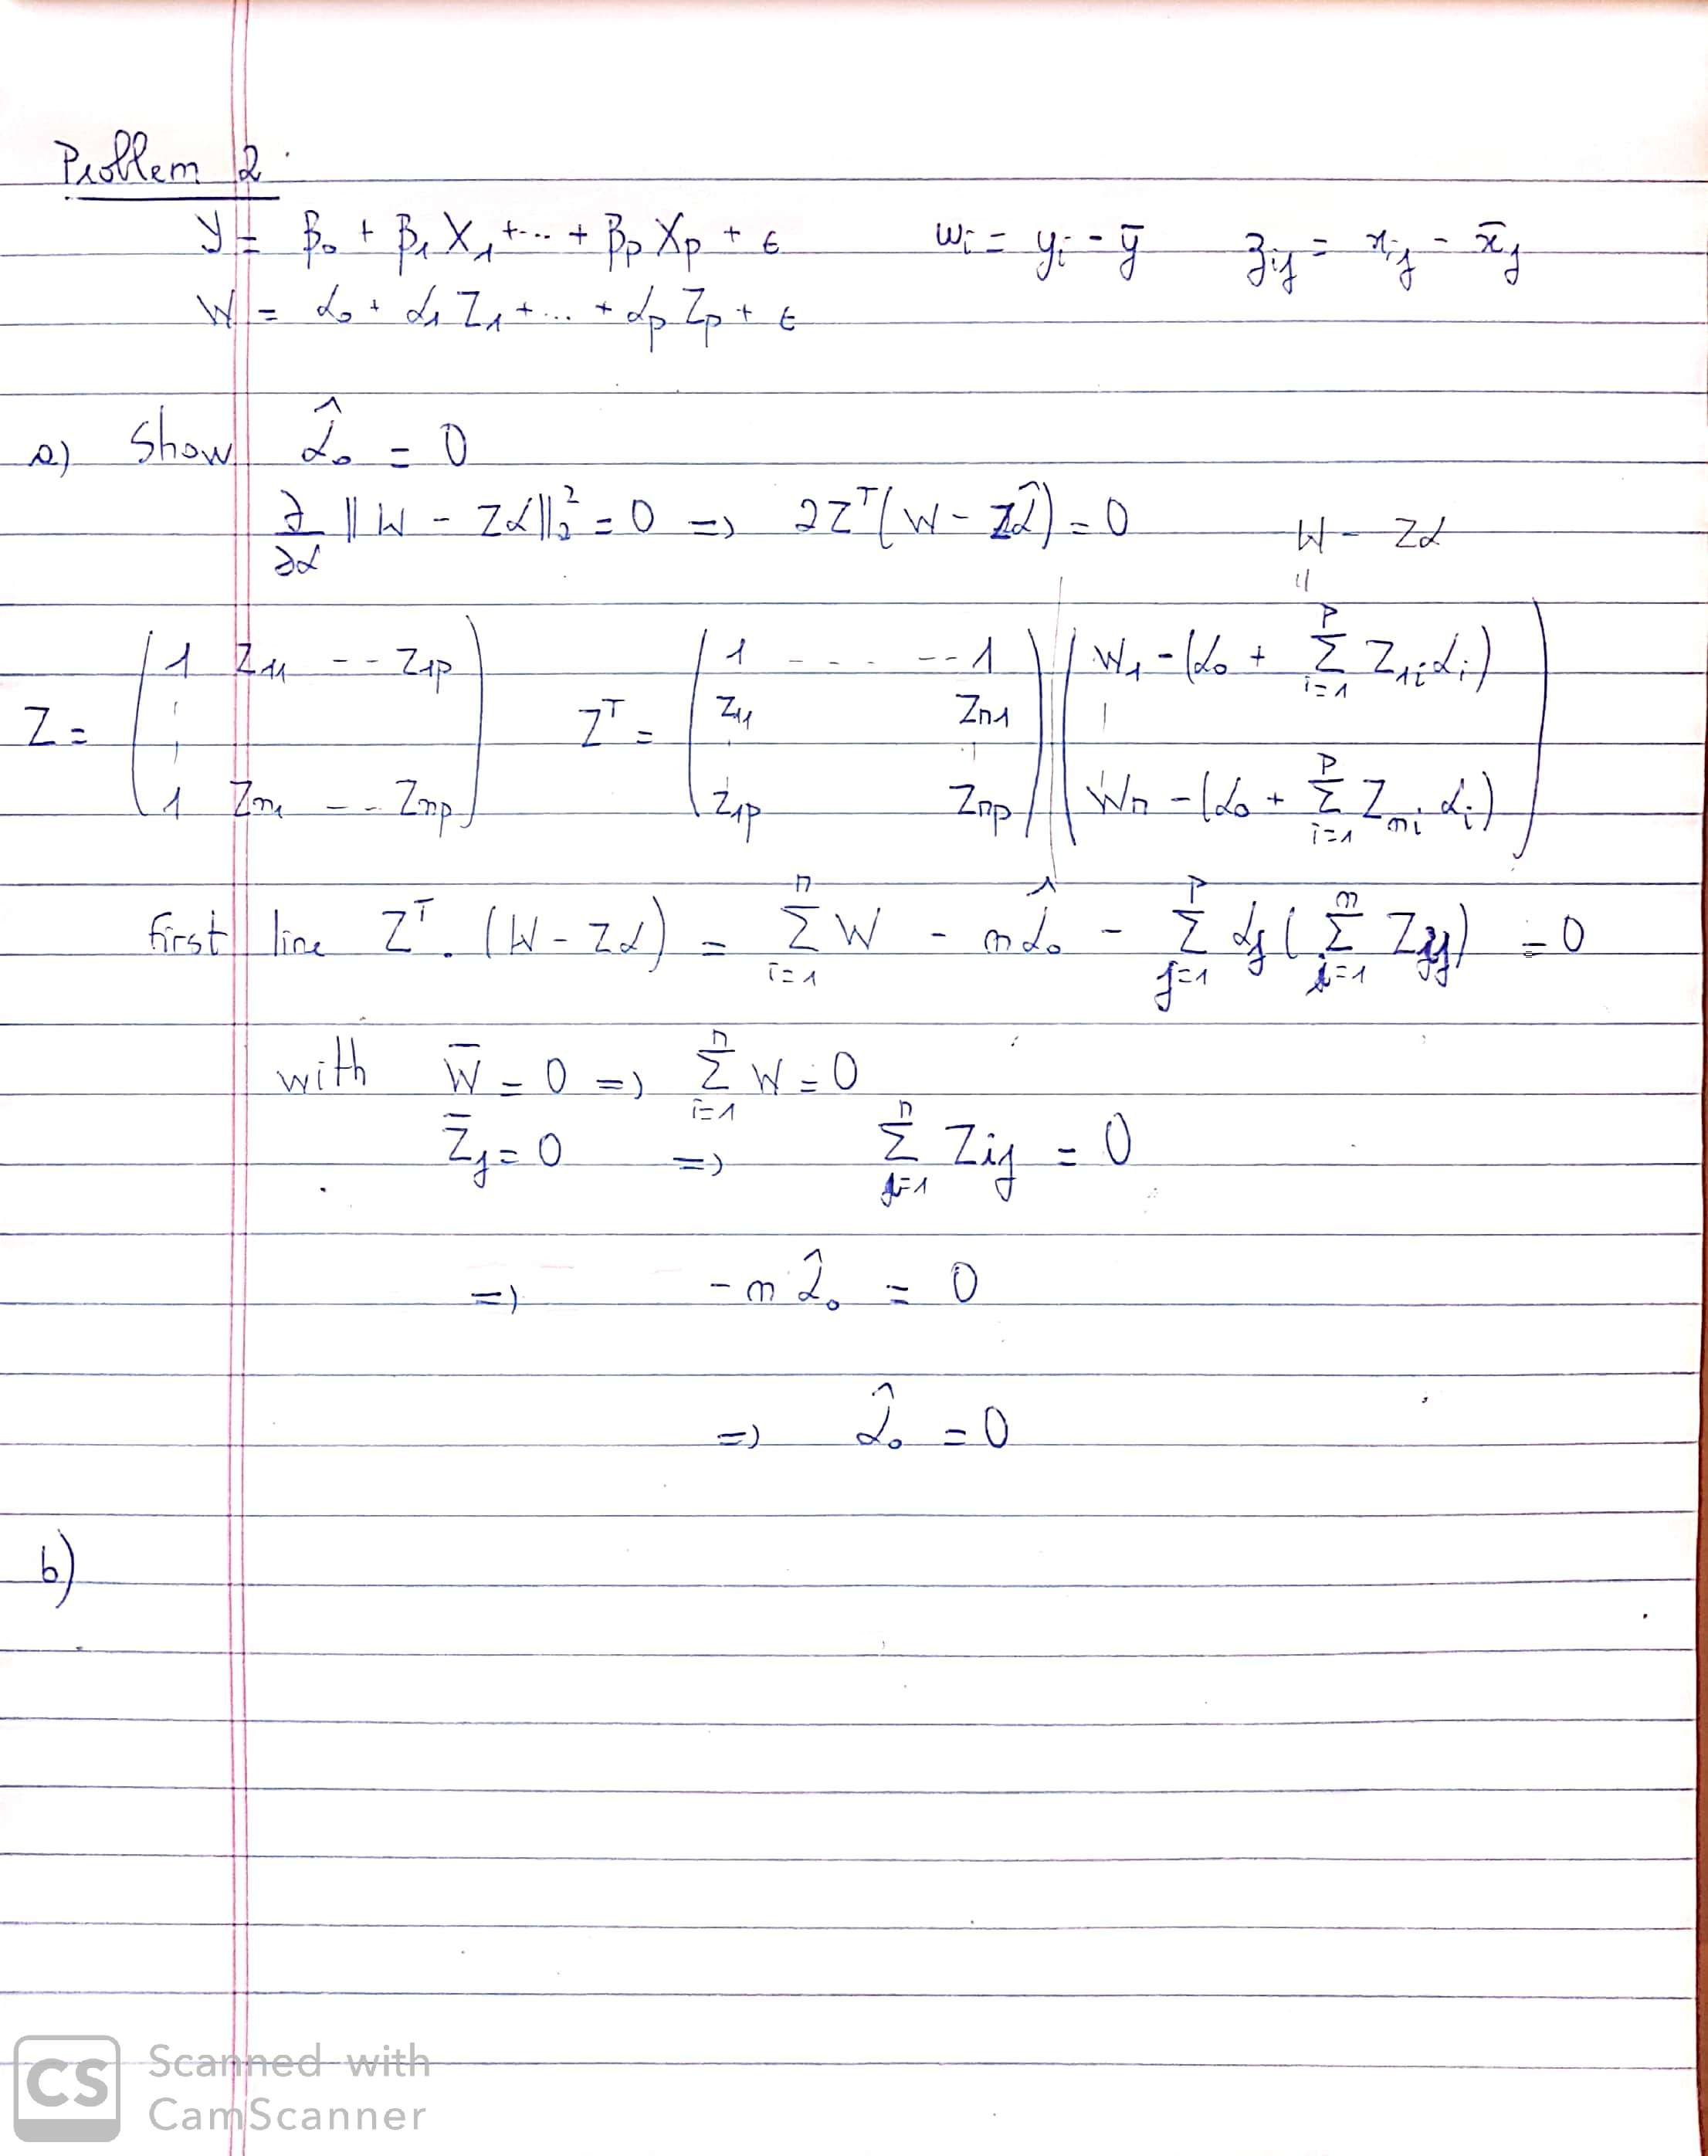 Problem 2
y = β₀ + β₁ X₁ + ... + βp Xp + ε    wᵢ = yᵢ - ȳ    zᵢⱼ = xᵢⱼ - x̄ⱼ
W = α₀ + α₁ Z₁ + ... + αp Zp + ε
a) Show α̂₀ = 0
∂/∂α ‖W - Zα‖₂² = 0 => 2Zᵀ(W - Zα̂) = 0    W - Zα
"
Z = ( 1 Z₁₁ -- Z₁p ; 1 Zn₁ -- Znp )    Zᵀ = ( 1 ... -- 1 ; Z₁₁ Zn₁ ; Z₁p Znp ) ( W₁ - (α₀ + Σᵢ₌₁ᵖ Z₁ᵢαᵢ) ; Wn - (α₀ + Σᵢ₌₁ᵖ Znᵢ αᵢ) )
first line Zᵀ . (W - Zα) = Σᵢ₌₁ⁿ W - nα̂₀ - Σⱼ₌₁ᵖ αⱼ ( Σᵢ₌₁ⁿ Zᵢⱼ) = 0
with W̄ = 0 => Σᵢ₌₁ⁿ W = 0
Z̄ⱼ = 0 => Σᵢ₌₁ⁿ Zᵢⱼ = 0
=> - n α̂₀ = 0
=> α̂₀ = 0
b)
CS Scanned with
CamScanner